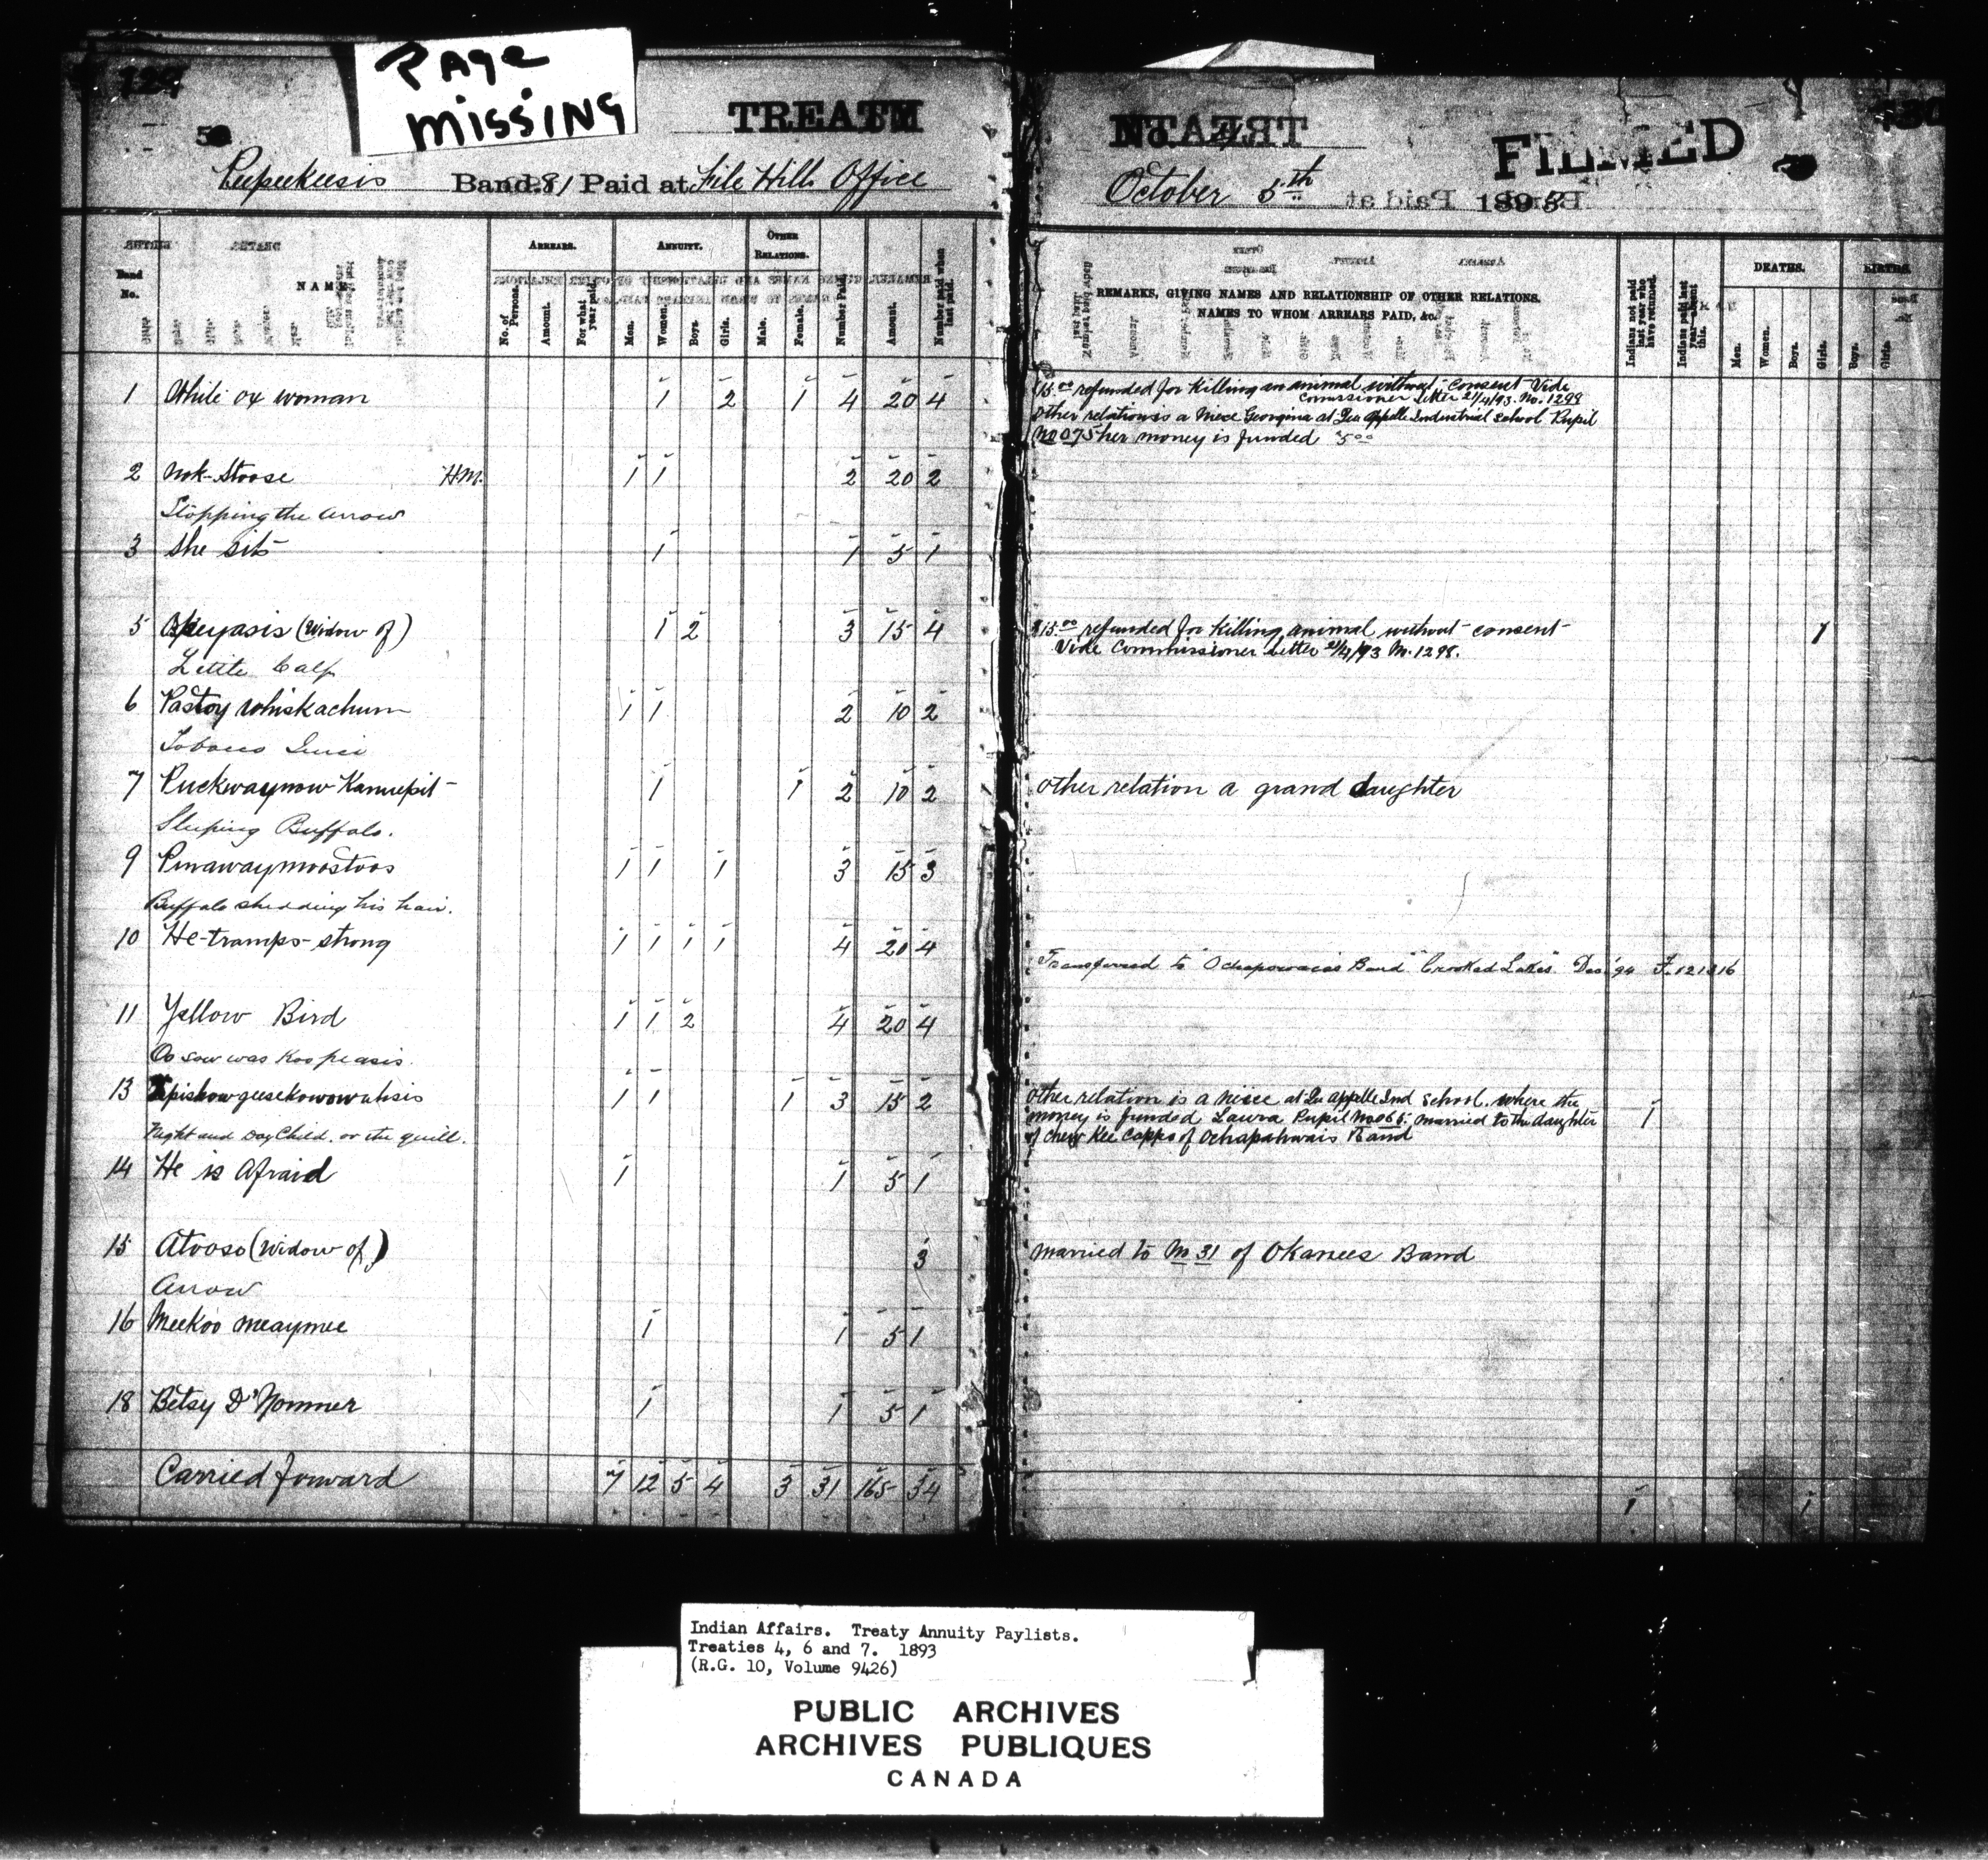 PAGE
MISSING
129
TREATY
No. 4
FILMED
Peepeekeesis Band. 81 Paid at File Hills Office
October 5th 1893
Band No.
NAME
ARREARS.
No. of Persons.
Amount.
For what year paid.
ANNUITY.
Men.
Women.
Boys.
Girls.
OTHER RELATIONS.
Male.
Female.
Number Paid.
Amount.
Number paid when last paid.
REMARKS, GIVING NAMES AND RELATIONSHIP OF OTHER RELATIONS.
NAMES TO WHOM ARREARS PAID, &c.
Indians not paid last year who have returned.
Indians paid last year—absent this.
DEATHS.
Men.
Women.
Boys.
Girls.
BIRTHS.
Boys.
Girls.
1 White ox woman 1 2 1 4 20 4
$15.00 refunded for Killing an animal without consent Vide
Commissioner Letter 21/4/93. No. 1298
Other relation is a Niece Georgina at Qu'Appelle Industrial School Pupil
No 075 her money is funded 5.00
2 Nok-Stoose H.M. 1 1 2 20 2
Stopping the Arrow
3 She Sits 1 1 5 1
5 (Widow of) 1 2 3 15 4
$15.00 refunded for Killing animal without consent 1
Vide Commissioner Letter 21/4/93 No. 1298.
Little Calf
6 Pastoy whiskachum 1 1 2 10 2
Tobacco Juice
7 Puckwaynow Kannepit 1 1 2 10 2
Other relation a grand daughter
Sleeping Buffalo.
9 Pinawaymoostoos 1 1 1 3 15 3
Buffalo shedding his hair.
10 He-tramps-strong 1 1 1 1 4 20 4
Transferred to "Ochapowace's Band" "Crooked Lakes" Dec. '94 F. 121316
11 Yellow Bird 1 1 2 4 20 4
Oo sow was Koo peasis.
13 Tipiskowgeesekowowahsis 1 1 1 3 15 2
Other relation is a niece at Qu'Appelle Ind School. where the
money is funded Laura Pupil No 066. married to the daughter 1
of Chew Kee Capps of Ochapahwais Band
Night and Day Child. or the quill.
14 He is Afraid 1 1 5 1
15 Atoose (Widow of) 3
Married to No 31 of Okanees Band
Arrow
16 Meekoo meaymee 1 1 5 1
18 Betsy D'Nommer 1 1 5 1
Carried forward 7 12 5 4 3 31 165 34 1 1
Indian Affairs. Treaty Annuity Paylists.
Treaties 4, 6 and 7. 1893
(R.G. 10, Volume 9426)
PUBLIC ARCHIVES
ARCHIVES PUBLIQUES
CANADA